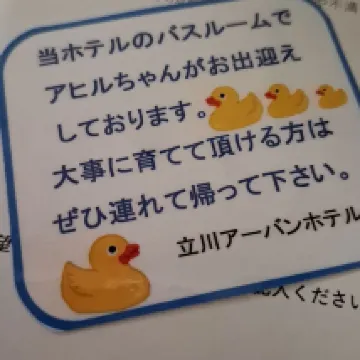 当ホテルのバスルームで
アヒルちゃんがお出迎え
しております。
大事に育てて頂ける方は
ぜひ連れて帰って下さい。
立川アーバンホテル
ください